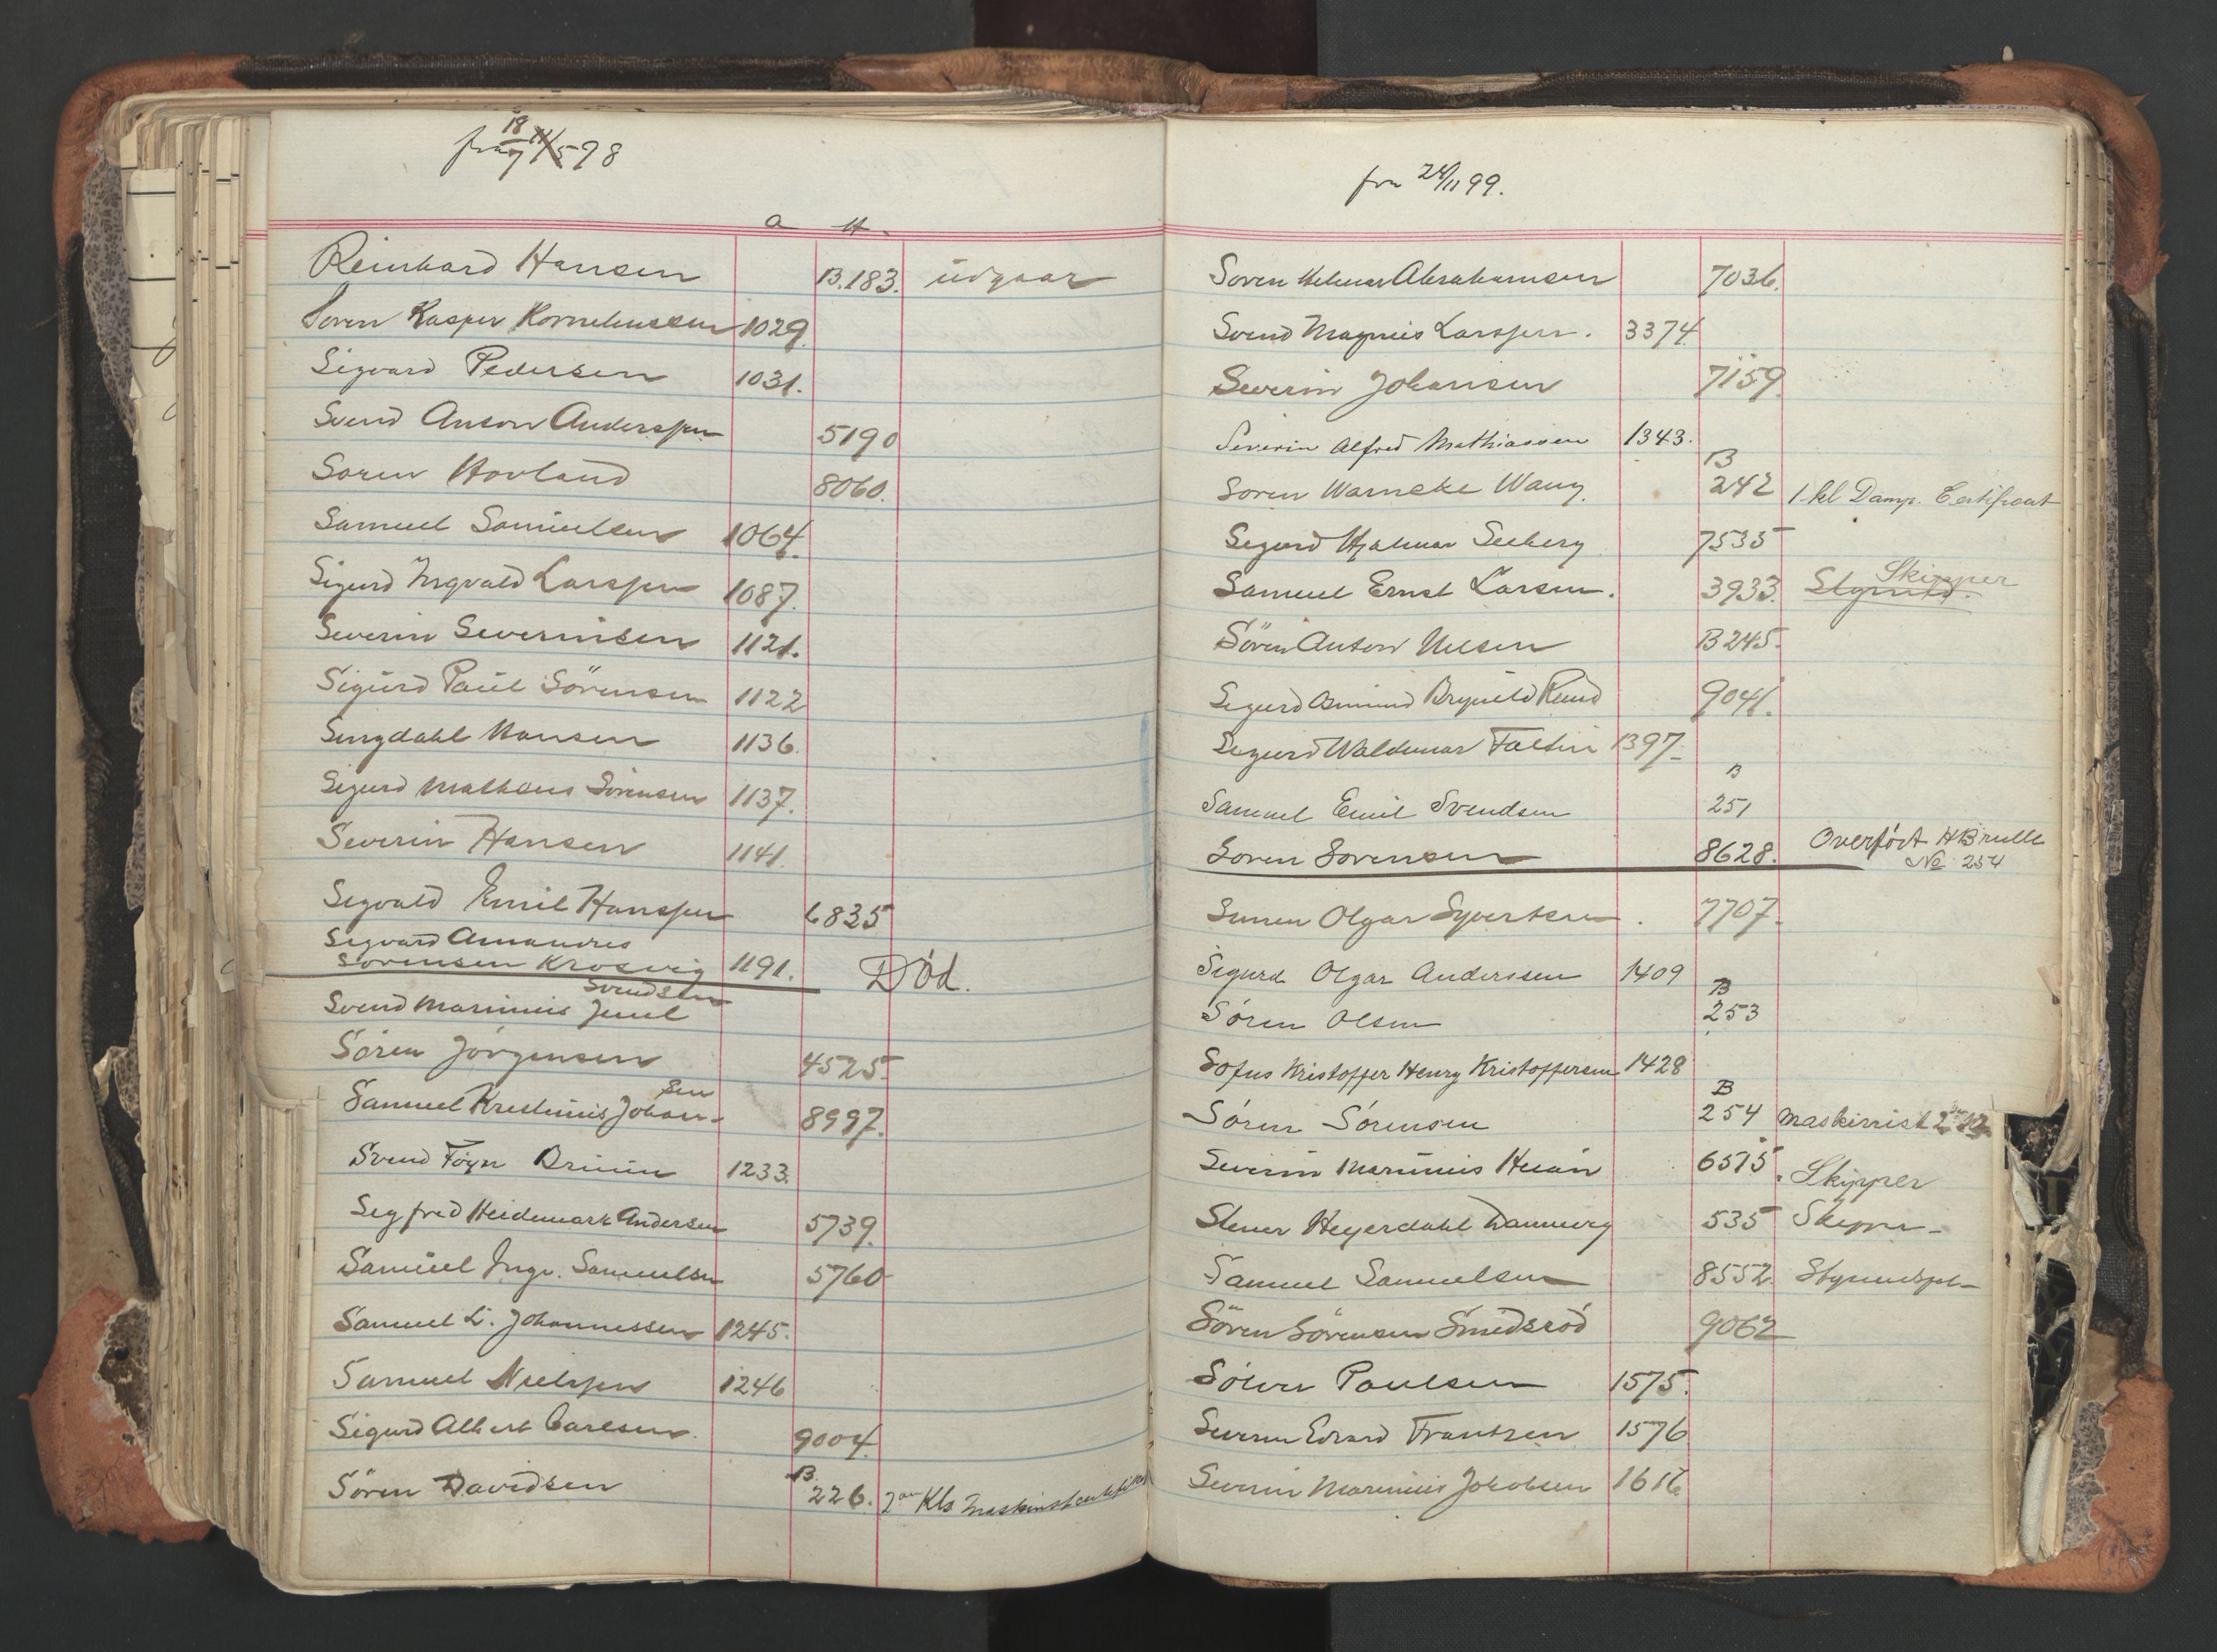 fra 18/7 98
a H.
Reinhard Hansen B.183. udgaar
Soren Kasper Korneliussen 1029
Sigvard Pedersen 1031.
Svend Anton Anderssen 5190
Soren Hovland 8060.
Samuel Samuelsen 1064.
Sigurd Ingvald Larssen 1087.
Severin Severinsen 1121.
Sigurd Paul Sörensen 1122
Hansen 1136.
Sigurd Matheus Sörensen 1137.
Severin Hansen 1141.
Sigvald Emil Hanssen 6835
Sigvard Amandus
Sorensen Krosvig 1191. Död.
Svendsen
Svend Marinius Juul
Sören Jörgensen 4525.
sen
Samuel Kristinius Johan- 8997.
Svend Föyn Bruun 1233.
Sigfred Heidemark Andersen 5739.
Samuel Ingv. Samuelsen 5760
Samuel L. Johannessen 1245.
Samuel Nielsen 1246
Sigurd Albert Carlsen. 9004.
B.
Sören Davidsen 226. 2den Kls
fra 24/11 99.
Soren Helmer Abrahamsen 7036.
Svend Magnus Larssen. 3374.
Severin Johansen 7159.
Severin Alfred Mathiassen 1343.
B
Soren Warncke Wang. 242 1. kl Damp. Certificat
Sigurd Hjalmar Seeberg 7535
Skipper
Samuel Ernst Larsen. 3933. Styrmd.
Sören Anton Nilsen B 245.
Sigurd Brynild Ruud 9041.
Sigurd Waldemar Faltin 1397-
B
Samuel Emil Svendsen 251
Soren Sorensen 8628. Overfört HBrulle
No 254
Olgar Syvertsen. 7707.
Sigurd Olgar Anderssen 1409
B
Sören Olsen 253
Sofus Kristoffer Henry Kristoffersen 1428
B
Sören Sörensen 254 Maskinist 2den
Severin Marinius 6515. Skipper
Heyerdahl 535 Skipper-
Samuel Samuelsen 8552.
Sören Sörensen Smedsröd 9062
Sölver Paulsen 1575.
Severin Edvard Frantzen 1576
Severin Marinius Jakobsen 1616